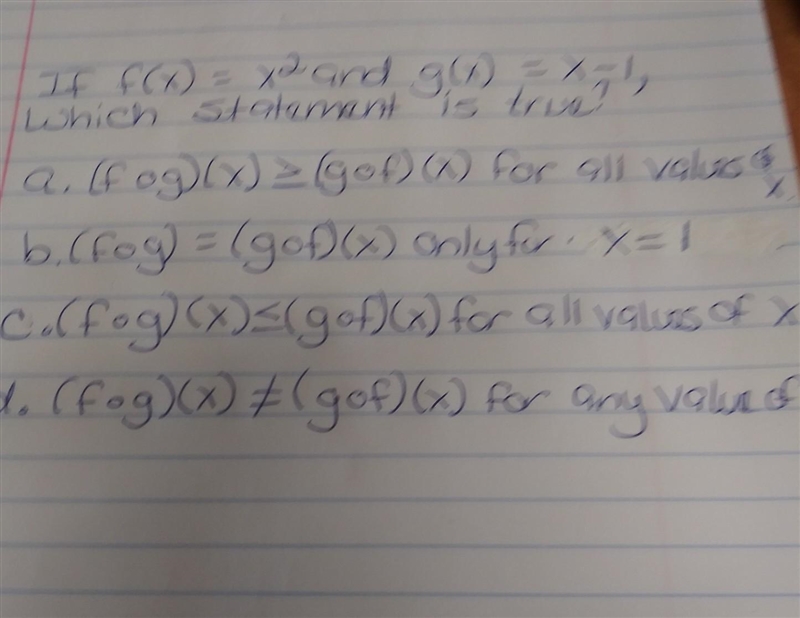 If f(x) = x² and g(x) = x-1,
which statement is true?
a. (fog)(x) ≥ (gof)(x) for all values of x
b. (fog) = (gof)(x) only for x = 1
c. (fog)(x) ≤ (gof)(x) for all values of x
d. (fog)(x) ≠ (gof)(x) for any value of